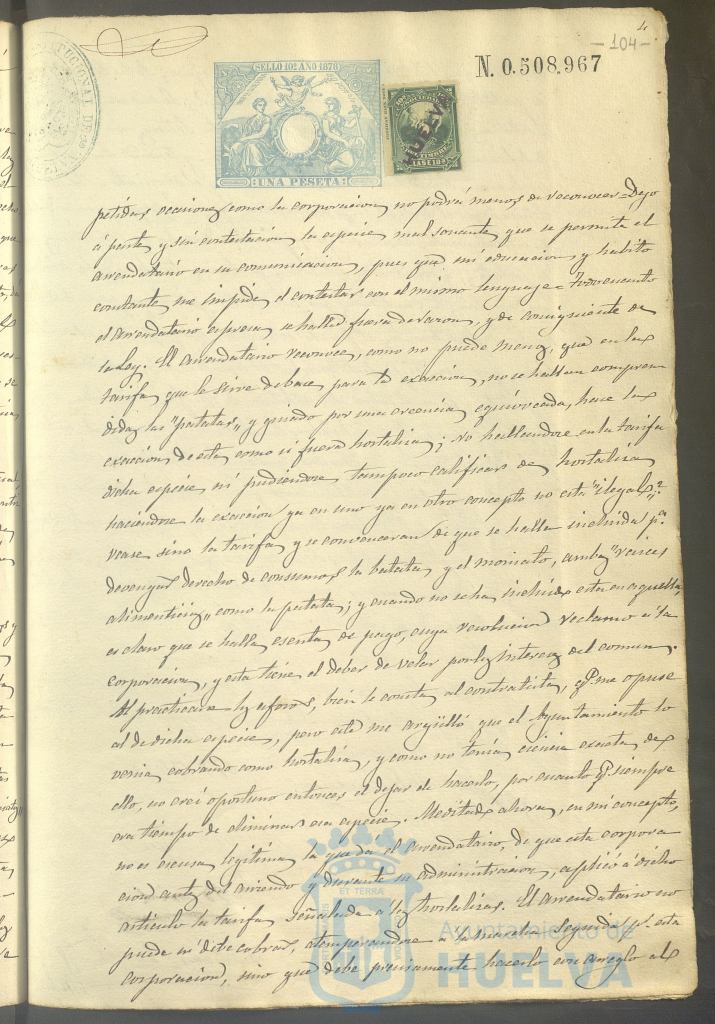 4
- 104 -
N. 0.508.967
SELLO 10º AÑO 1878
UNA PESETA
HUELVA
petidas occiones, como la corporacion no podrá menos de reconocer. Dejo
á parte, y sin contestacion, la especie mal sonante, que se permite el
arrendatario en su comunicacion, pues que mi educacion y habito
constante me impide el contestar con el mismo lenguaje. Todo cuanto
el arrendatario espresa se halla fuera de razon, y de consiguiente de
la Ley. El arrendatario reconoce, como no puede menos, que en la
tarifa que le sirve de base para la exaccion, no se hallan compren
didas las "patatas", y guiado por una creencia equivocada, hace la
exaccion de esta como si fuera hortaliza; no hallandose en la tarifa
dicha especie ni pudiendose tampoco calificar de hortaliza
haciendose la exaccion ya en uno ya en otro concepto no esta "ilegal"?
vease sino la tarifa y se convenceran de que se halla incluida pª
devengar derecho de consumos la batata y el moniato, ambas "raices
alimenticias" como la patata; y cuando no se ha incluido esta en aquella,
es claro que se halla esenta de pago, cuya resolucion reclamo á la
corporacion, y esta tiene el deber de velar por los intereses del comun.
Al practicarse los aforos, bien le consta al contratista, qe. me opuse
al de dicha especie, pero este me argüyó que el Ayuntamiento lo
venia cobrando como hortaliza, y como no tenia ciencia exacta de
ello, no creí oportuno entonces el dejar de hacerlo, por cuanto qe. siempre
era tiempo de eliminar esa especie. Meditado ahora, en mi concepto,
no es escusa legitima la que da el arrendatario, de que esta corpora
cion antes del arriendo y durante su administracion, aplicó á dicho
articulo la tarifa señalada á las hortalizas. El arrendatario no
puede ni debe cobrar, atemperandose á la marcha seguida pr. esta
corporacion, sino que debe precisamente hacerlo con arreglo al
Ayuntamiento de
HUELVA